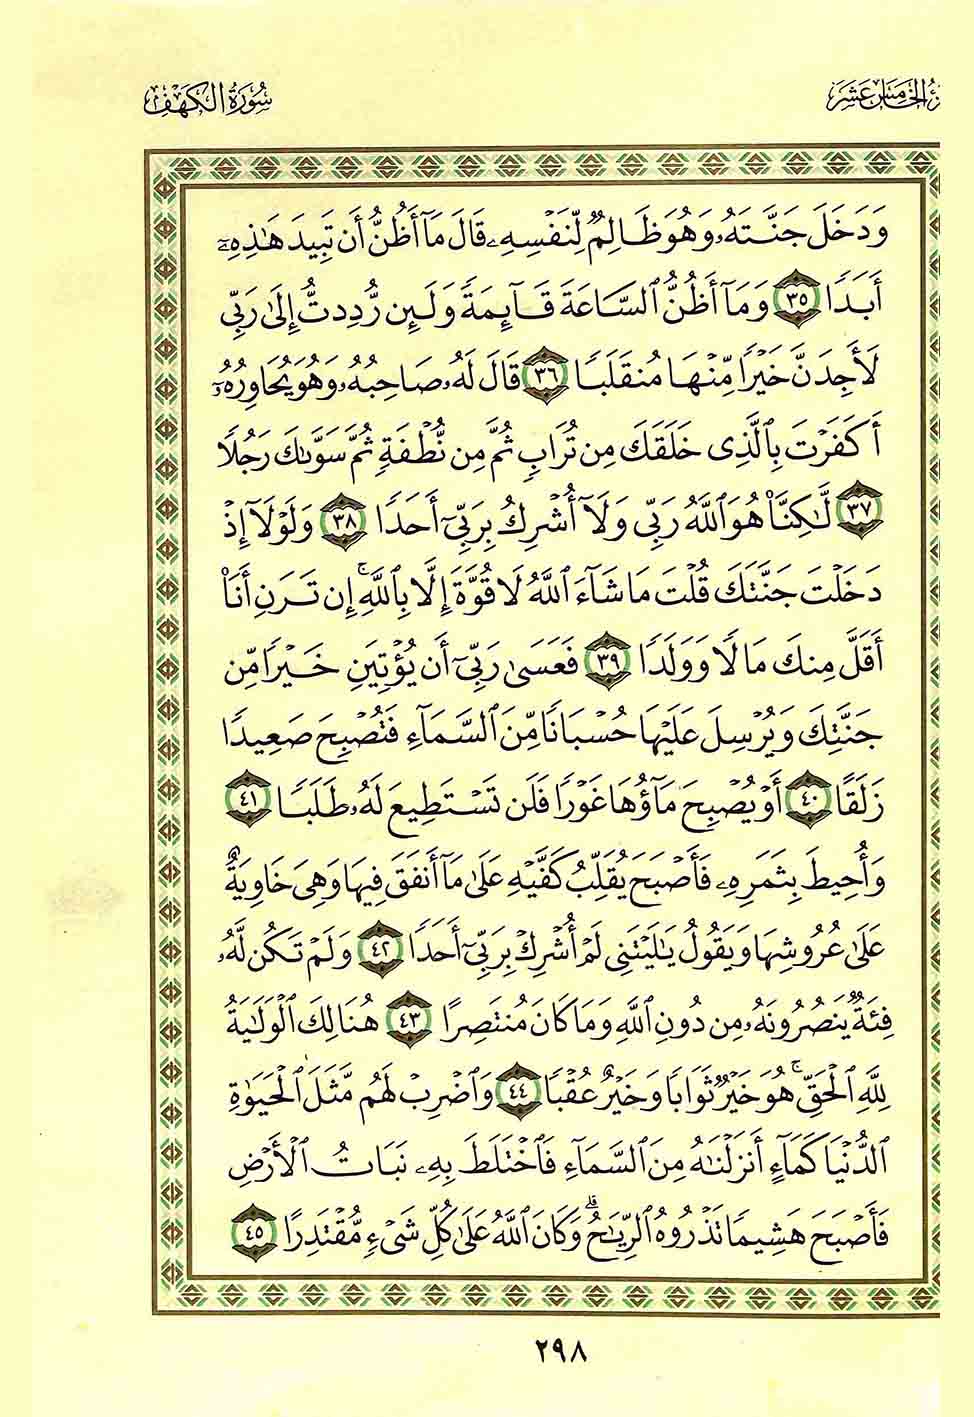 سُورَةُ الكَهْفِ
الخَامِسَ عَشَرَ
وَدَخَلَ جَنَّتَهُۥ وَهُوَ ظَالِمٌ لِّنَفْسِهِۦ قَالَ مَآ أَظُنُّ أَن تَبِيدَ هَٰذِهِۦٓ
أَبَدًا ٣٥ وَمَآ أَظُنُّ ٱلسَّاعَةَ قَآئِمَةً وَلَئِن رُّدِدتُّ إِلَىٰ رَبِّى
لَأَجِدَنَّ خَيْرًا مِّنْهَا مُنقَلَبًا ٣٦ قَالَ لَهُۥ صَاحِبُهُۥ وَهُوَ يُحَاوِرُهُۥٓ
أَكَفَرْتَ بِٱلَّذِى خَلَقَكَ مِن تُرَابٍ ثُمَّ مِن نُّطْفَةٍ ثُمَّ سَوَّىٰكَ رَجُلًا
٣٧ لَّٰكِنَّا۠ هُوَ ٱللَّهُ رَبِّى وَلَآ أُشْرِكُ بِرَبِّىٓ أَحَدًا ٣٨ وَلَوْلَآ إِذْ
دَخَلْتَ جَنَّتَكَ قُلْتَ مَا شَآءَ ٱللَّهُ لَا قُوَّةَ إِلَّا بِٱللَّهِ ۚ إِن تَرَنِ أَنَا۠
أَقَلَّ مِنكَ مَالًا وَوَلَدًا ٣٩ فَعَسَىٰ رَبِّىٓ أَن يُؤْتِيَنِ خَيْرًا مِّن
جَنَّتِكَ وَيُرْسِلَ عَلَيْهَا حُسْبَانًا مِّنَ ٱلسَّمَآءِ فَتُصْبِحَ صَعِيدًا
زَلَقًا ٤٠ أَوْ يُصْبِحَ مَآؤُهَا غَوْرًا فَلَن تَسْتَطِيعَ لَهُۥ طَلَبًا ٤١
وَأُحِيطَ بِثَمَرِهِۦ فَأَصْبَحَ يُقَلِّبُ كَفَّيْهِ عَلَىٰ مَآ أَنفَقَ فِيهَا وَهِىَ خَاوِيَةٌ
عَلَىٰ عُرُوشِهَا وَيَقُولُ يَٰلَيْتَنِى لَمْ أُشْرِكْ بِرَبِّىٓ أَحَدًا ٤٢ وَلَمْ تَكُن لَّهُۥ
فِئَةٌ يَنصُرُونَهُۥ مِن دُونِ ٱللَّهِ وَمَا كَانَ مُنتَصِرًا ٤٣ هُنَالِكَ ٱلْوَلَٰيَةُ
لِلَّهِ ٱلْحَقِّ ۚ هُوَ خَيْرٌ ثَوَابًا وَخَيْرٌ عُقْبًا ٤٤ وَٱضْرِبْ لَهُم مَّثَلَ ٱلْحَيَوٰةِ
ٱلدُّنْيَا كَمَآءٍ أَنزَلْنَٰهُ مِنَ ٱلسَّمَآءِ فَٱخْتَلَطَ بِهِۦ نَبَاتُ ٱلْأَرْضِ
فَأَصْبَحَ هَشِيمًا تَذْرُوهُ ٱلرِّيَٰحُ ۗ وَكَانَ ٱللَّهُ عَلَىٰ كُلِّ شَىْءٍ مُّقْتَدِرًا ٤٥
٢٩٨